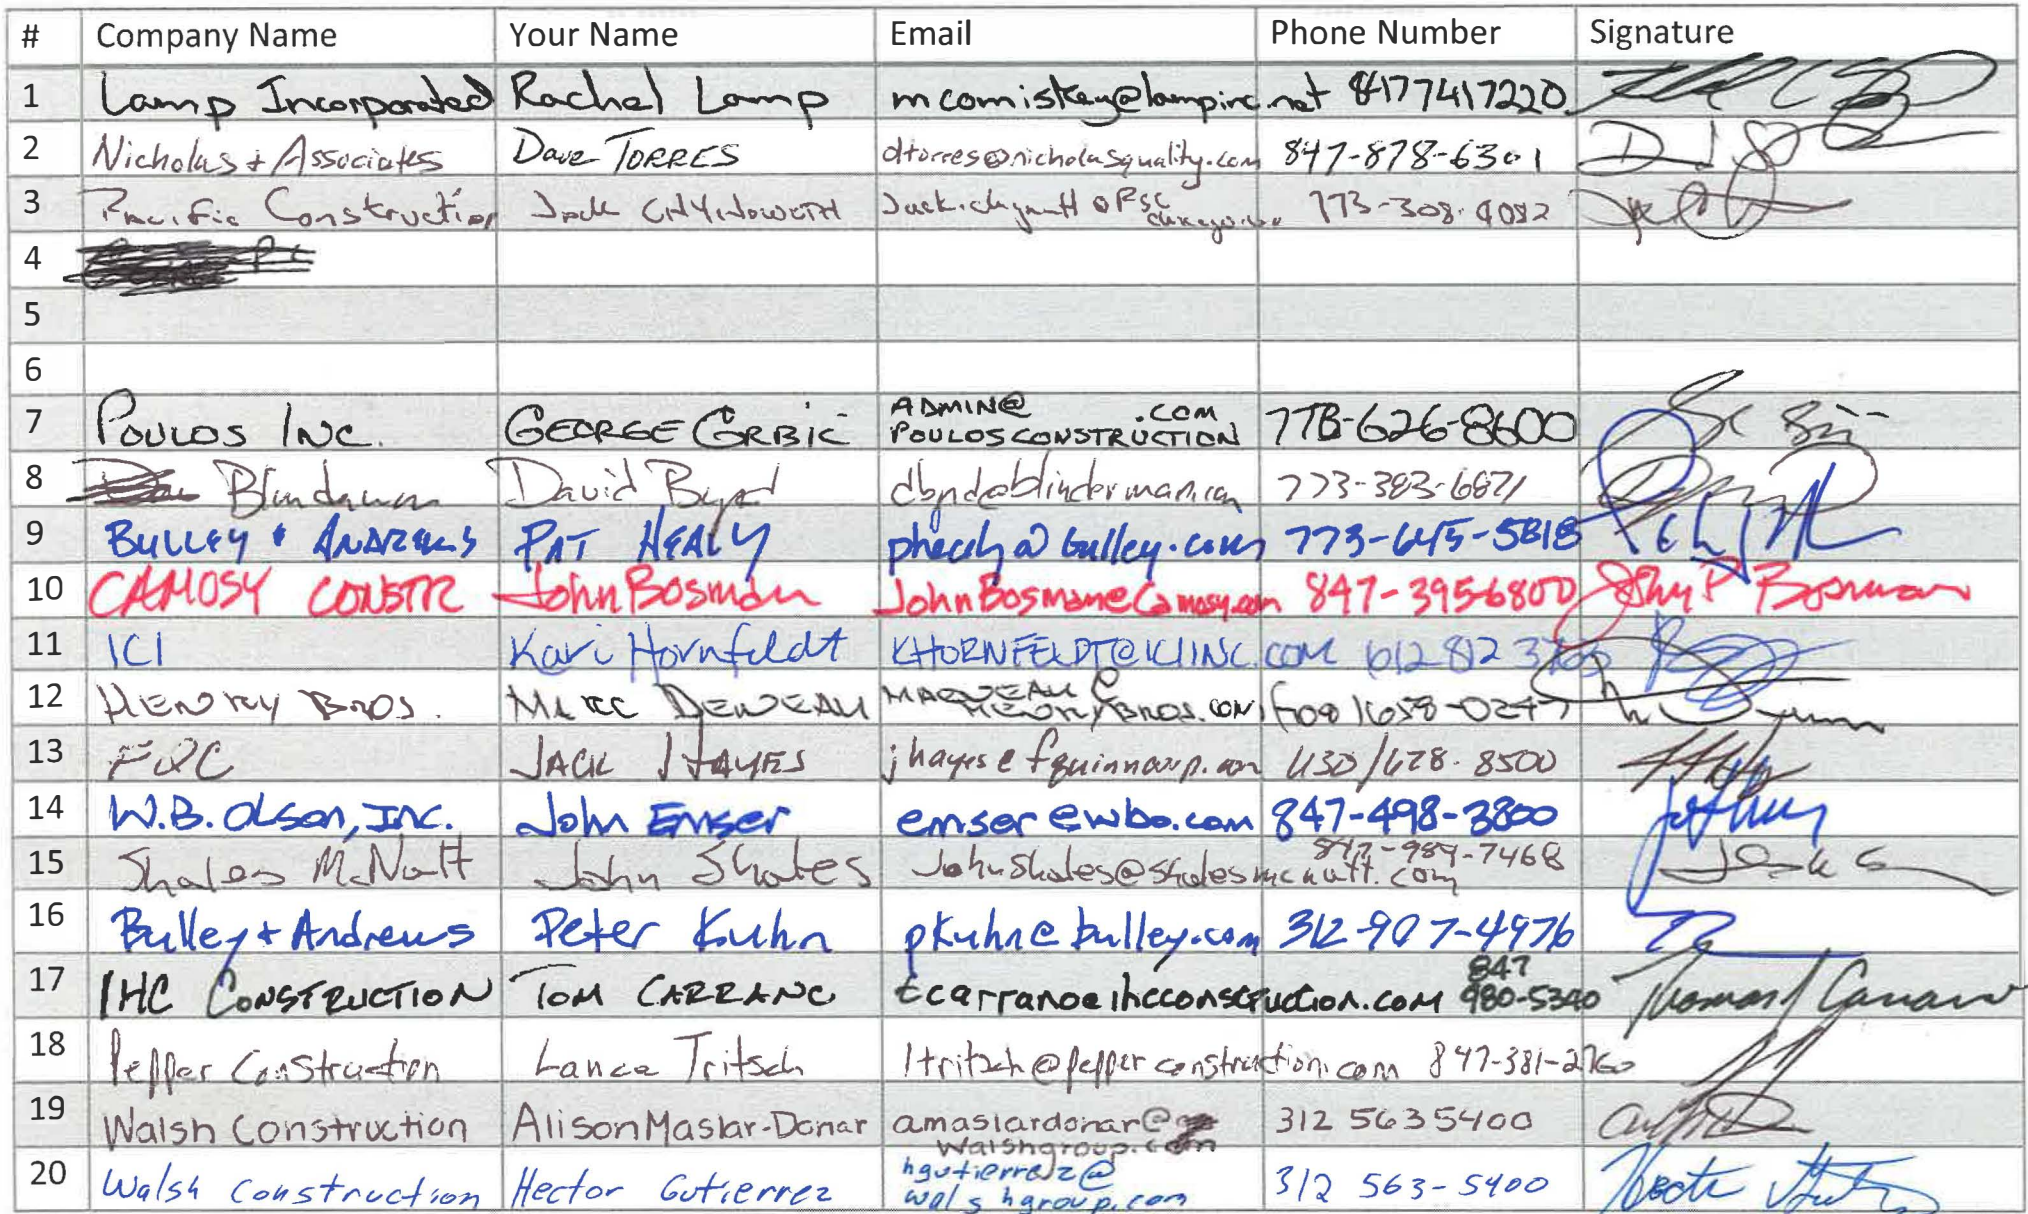 # Company Name Your Name Email Phone Number Signature
1 Lamp Incorporated Rachel Lamp mcomiskey@lampinc.net 8477417220
2 Nicholas + Associates Dave TORRES dtorres@nicholasquality.com 847-878-6301
3 Pacific Construction Jack 773-308-9082
4
5
6
7 POULOS INC. GEORGE GRBIC ADMIN@ .COM
POULOSCONSTRUCTION 773-626-8600
8 David Byrd 773-383-6871
9 BULLEY + ANDREWS PAT HEALY phealy@bulley.com 773-645-5818
10 CAMOSY CONSTR John Bosman JohnBosman@Camosy.com 847-395-6800 John P Bosman
11 ICI Kari Hornfeldt KHORNFELDT@ICIINC.COM 612 812
12 HENRY BROS. MARC DENEAU HENRYBROS.COM
13 FQC JACK HAYES jhayes@fquinncorp.com 630/628-8500
14 W.B. Olson, Inc. John Emser emser@wbo.com 847-498-3800
15 Shales McNutt John Shales JohnShales@shalesmcnutt.com 847-989-7468
16 Bulley + Andrews Peter Kuhn pkuhn@bulley.com 312-907-4976
17 IHC CONSTRUCTION TOM CARRANO tcarrano@ihcconstruction.com 847
980-5340 Thomas J Carrano
18 Pepper Construction Lance Tritsch ltritsch@pepperconstruction.com 847-381-2760
19 Walsh Construction Alison Maslar-Donar amaslardonar@
walshgroup.com 312 563 5400
20 Walsh Construction Hector Gutierrez hgutierrez@
walshgroup.com 312 563-5400